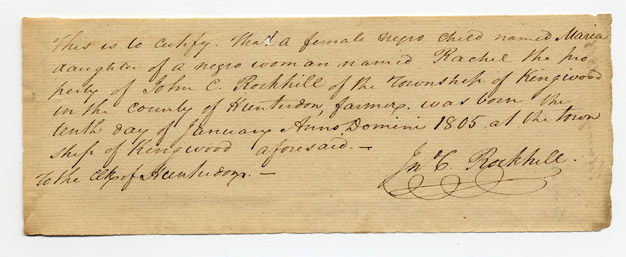 This is to certify. That a female negro child named Maria
daughter of a negro woman named Rachel the pro
perty of John C. Rockhill of the Township of Kingwood
in the county of Hunterdon, farmer. was born the
tenth day of January Anno Domini 1805. at the town
ship of Kingwood aforesaid. —
To the Clk of Hunterdon. —
Jno C. Rockhill.